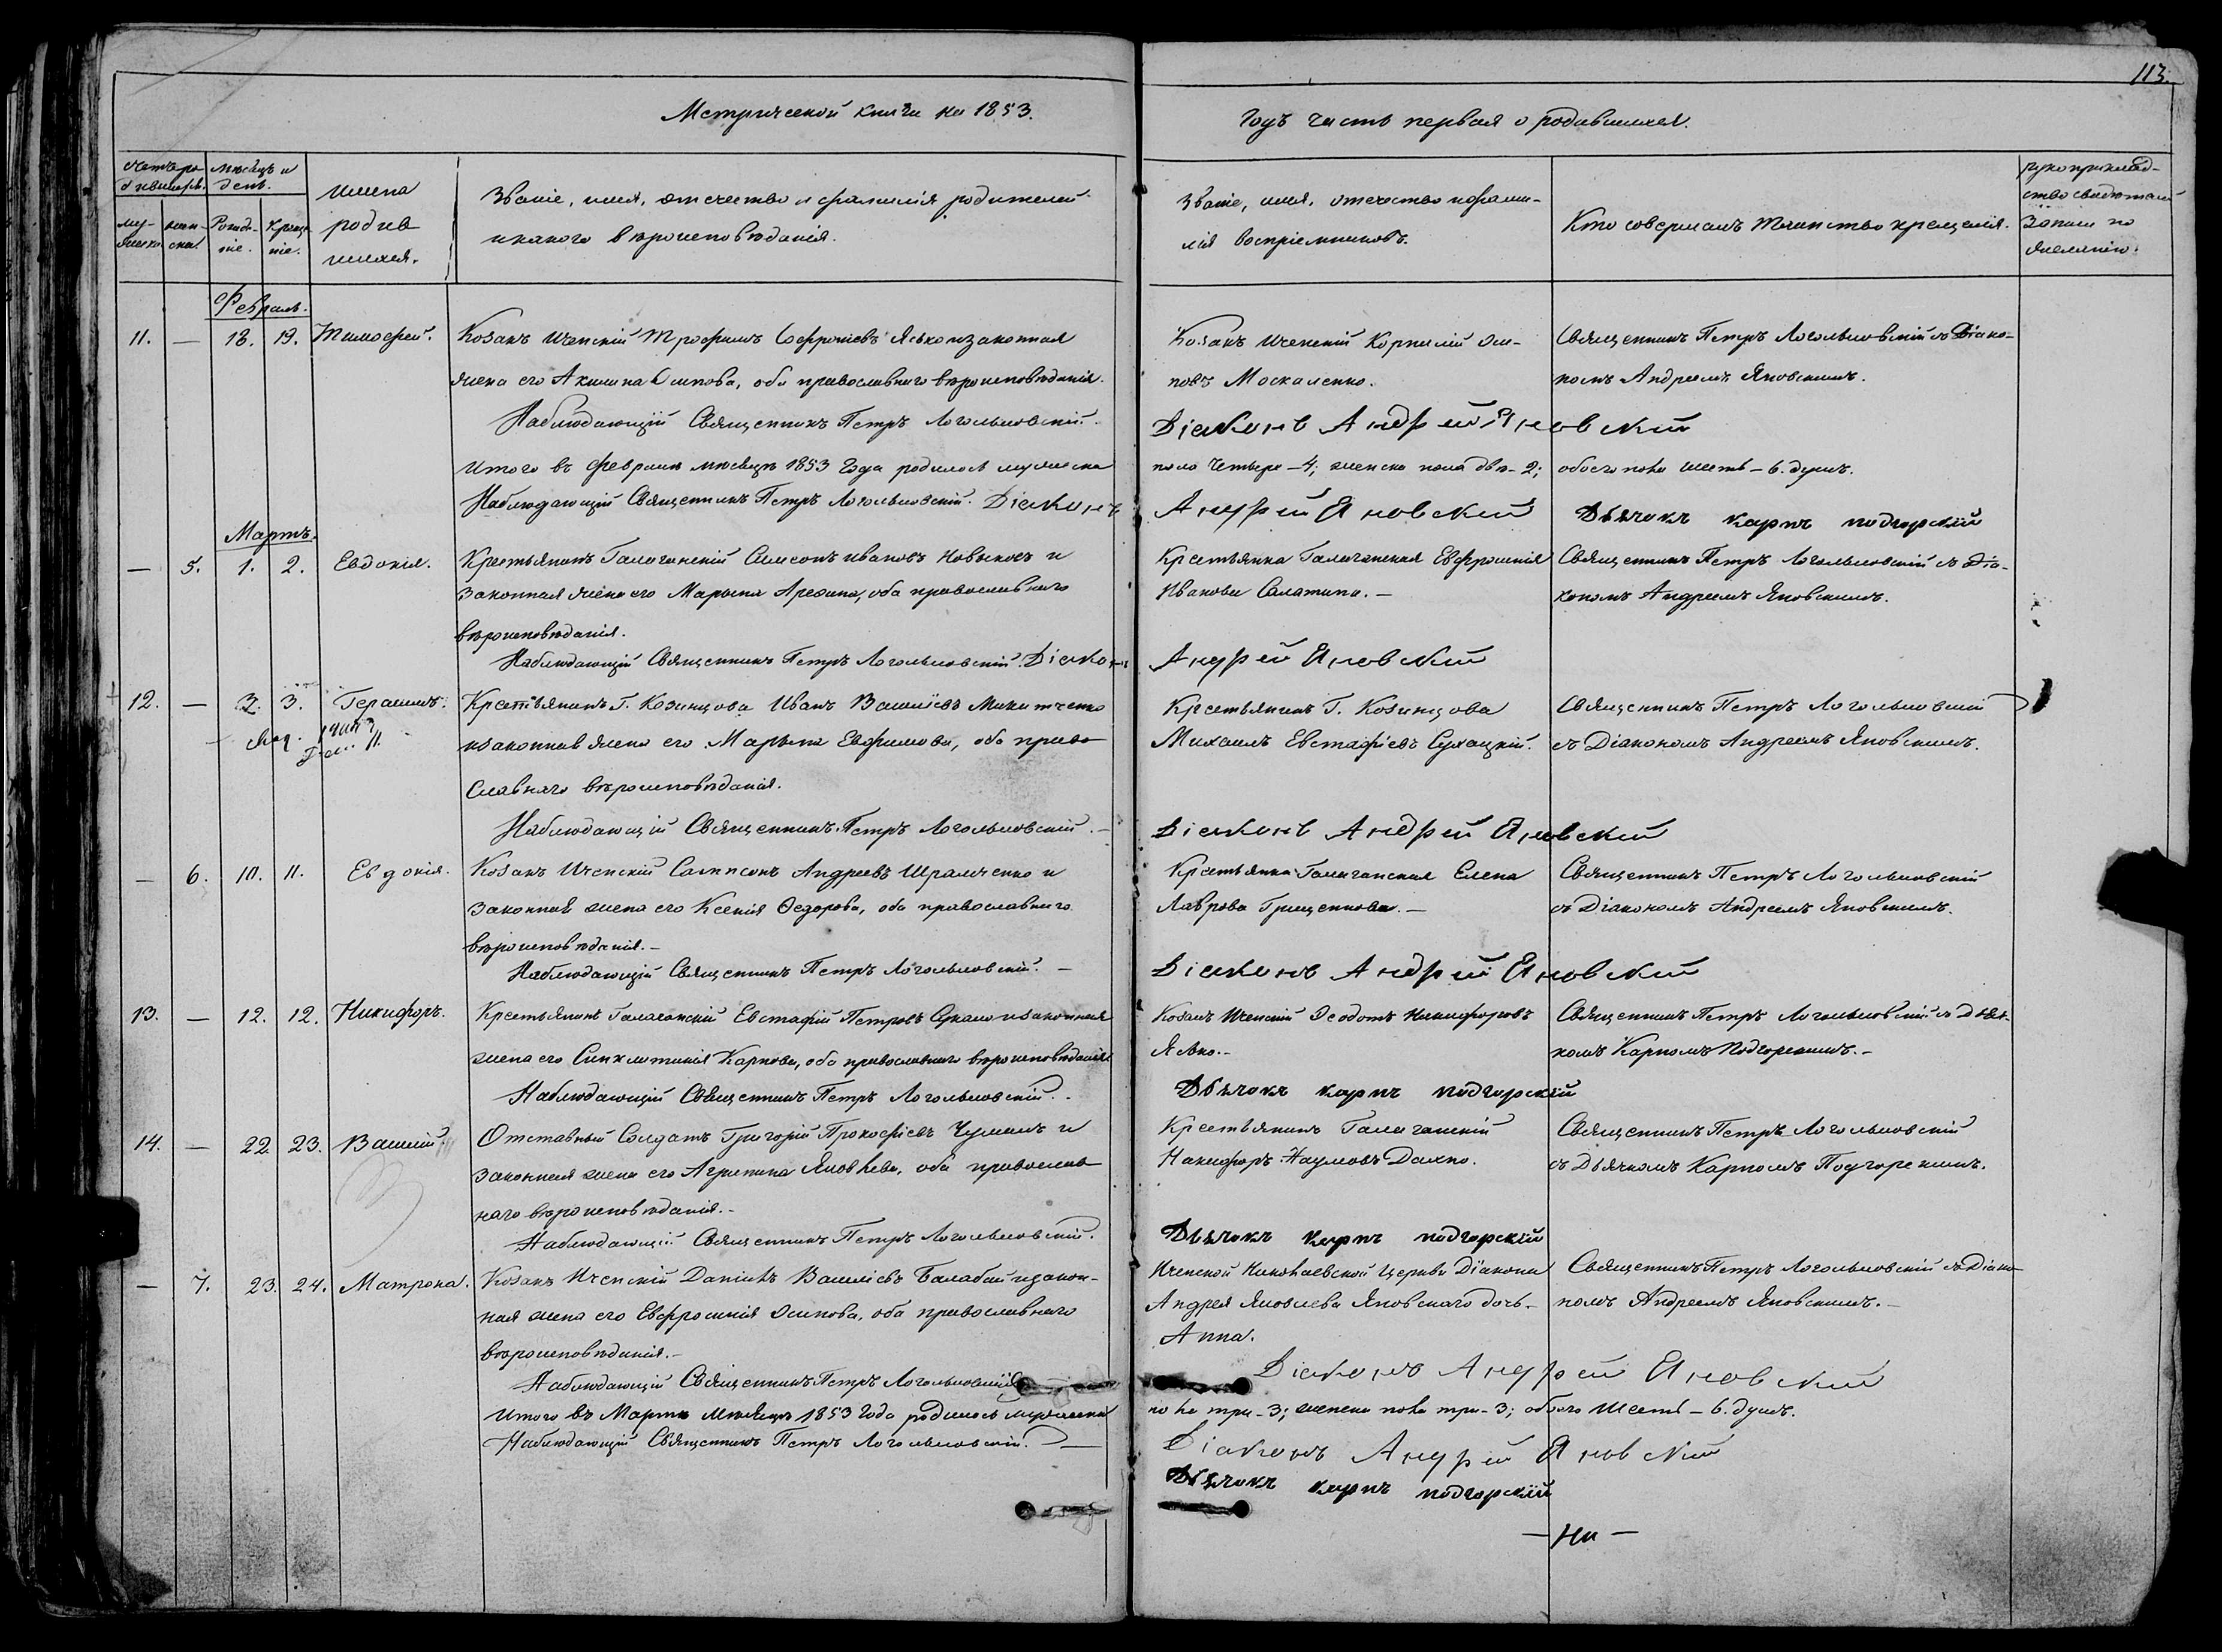 113.
Метрической книги на 1853.
Годъ часть первая о родившихся.
Счетъ родившихъ.
Мѣсяцъ и день.
Имена родившихся.
Званіе, имя, отчество и фамилія родителей
и какого вѣроисповѣданія.
Званіе, имя, отчество и фами-
лія воспріемниковъ.
Кто совершалъ таинство крещенія.
Рукоприклад-
ство свидѣтелей
записи по
желанію.
му-
жеска.
жен-
ска.
Рожде-
ніе.
Креще-
ніе.
Февраль.
11. — 18. 19. Тимофей.
Козакъ Иченскій Трофимъ Софроніевъ Яськоизаконная
жена его Акилина Осипова, оба православнаго вѣроисповѣданія.
Козакъ Иченскій Корнилій Оси-
повъ Москаленко.
Священникъ Петръ Логольновскій съ Діако-
номъ Андреемъ Яновскимъ.
Наблюдающій Священникъ Петръ Логольновскій.
Діаконъ Андрей Яновскій
Итого въ февралѣ мѣсяцѣ 1853 года родилось мужеска
пола четыре - 4; женска пола двѣ - 2;
обоего пола шесть - 6. душъ.
Наблюдающій Священникъ Петръ Логольновскій. Діаконъ
Андрей Яновскій
Дьячокъ карпъ подгорскій
Мартъ.
— 5. 1. 2. Евдокія.
Крестьянинъ Галаганскій Симеонъ Ивановъ Новыкъ и
законная жена его Марына, оба православнаго
вѣроисповѣданія.
Крестьянка Галаганская Евфросинія
Иванова
Священникъ Петръ Логольновскій съ Діа-
кономъ Андреемъ Яновскимъ.
Наблюдающій Священникъ Петръ Логольновскій. Діаконъ
Андрей Яновскій
12. — 2. 3. Герасимъ.
Крестьянинъ Г. Козинцова Иванъ Василіевъ Микитченко
изаконная жена его Марына Евфимова, оба право-
славнаго вѣроисповѣданія.
Крестьянинъ Г. Козинцова
Михаилъ Евстафіевъ
Священникъ Петръ Логольновскій
съ Діакономъ Андреемъ Яновскимъ.
Наблюдающій Священникъ Петръ Логольновскій. —
Діаконъ Андрей Яновскій
— 6. 10. 11. Евдокія.
Козакъ Иченскій Сампсонъ Андреевъ Шрамченко и
законная жена его Ксенія Ѳедорова, оба православнаго
вѣроисповѣданія. —
Крестьянка Галаганская Елена
Лаврова Грищенкова. —
Священникъ Петръ Логольновскій
съ Діакономъ Андреемъ Яновскимъ.
Наблюдающій Священникъ Петръ Логольновскій. —
Діаконъ Андрей Яновскій
13. — 12. 12. Никифоръ.
Крестьянинъ Галаганскій Евстафій Петровъ изаконная
жена его Синклитикія Карпова, оба православнаго вѣроисповѣданія
Козакъ Иченскій Ѳеодотъ Никифоровъ
Ясько. -
Священникъ Петръ Логольновскій съ Дьяч-
комъ Карпомъ Подгорскимъ. -
Наблюдающій Священникъ Петръ Логольновскій. -
Дьячокъ карпъ подгорскій
14. — 22. 23. Василій.
Отставный Солдатъ Григорій Прокофіевъ и
законная жена его Агрипина Яковлева, оба православ-
наго вѣроисповѣданія. -
Крестьянинъ Галаганскій
Никифоръ Наумовъ Дахно.
Священникъ Петръ Логольновскій
съ Дьячкомъ Карпомъ Подгорскимъ.
Наблюдающій Священникъ Петръ Логольновскій.
Дьячокъ карпъ подгорскій
— 7. 23. 24. Матрона.
Козакъ Иченскій Даніилъ Василіевъ Балабай изакон-
ная жена его Евфросинія Осипова, оба православнаго
вѣроисповѣданія. -
Иченской Николаевской Церкви Діакона
Андрея Яковлева Яновскаго дочь -
Анна.
Священникъ Петръ Логольновскій съ Діако-
номъ Андреемъ Яновскимъ. -
Наблюдающій Священникъ Петръ Логольновскій
Діаконъ Андрей Яновскій
Итого въ Мартѣ Мѣсяцѣ 1853 года родилось мужеска
пола три - 3; женска пола три - 3; обоего Шесть - 6. душъ.
Наблюдающій Священникъ Петръ Логольновскій. —
Діаконъ Андрей Яновскій
Дьячокъ карпъ подгорскій
— На —